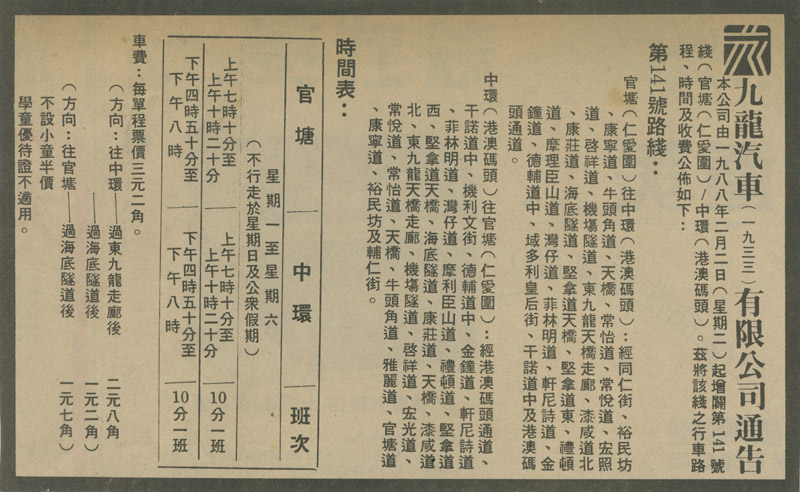 九龍汽車（一九三三）有限公司通告
本公司由一九八八年二月二日（星期二）起增闢第141號
綫（官塘（仁愛圍）/中環（港澳碼頭）。茲將該綫之行車路
程、時間及收費公佈如下：
第141號路綫：
官塘（仁愛圍）往中環（港澳碼頭）：經同仁街、裕民坊
、康寧道、牛頭角道、天橋、常怡道、常悅道、宏照
道、啓祥道、機塲隧道、東九龍天橋走廊、漆咸道北
、康莊道、海底隧道、堅拿道天橋、堅拿道東、禮頓
道、摩理臣山道、灣仔道、菲林明道、軒尼詩道、金
鐘道、德輔道中、域多利皇后街、干諾道中及港澳碼
頭通道。
中環（港澳碼頭）往官塘（仁愛圍）：經港澳碼頭通道、
干諾道中、機利文街、德輔道中、金鐘道、軒尼詩道
、菲林明道、灣仔道、摩利臣山道、禮頓道、堅拿道
西、堅拿道天橋、海底隧道、康莊道、天橋、漆咸道
北、東九龍天橋走廊、機塲隧道、啓祥道、宏光道、
常悅道、常怡道、天橋、牛頭角道、雅麗道、官塘道
、康寧道、裕民坊及輔仁街。
時間表：
官塘 中環 班次
星期一至星期六
（不行走於星期日及公衆假期）
上午七時十分至 上午七時十分至 10分一班
上午十時二十分 上午十時二十分
下午四時五十分至 下午四時五十分至 10分一班
下午八時 下午八時
車費：每單程票價三元二角。
（方向：往中環——過東九龍走廊後 二元八角
——過海底隧道後 一元二角）
（方向：往官塘——過海底隧道後 一元七角）
不設小童半價
學童優待證不適用。